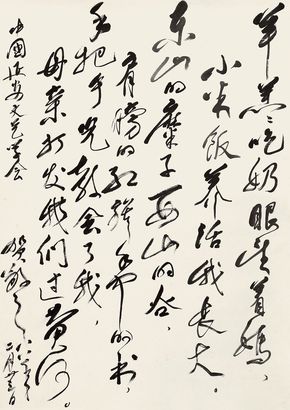 羊羔々吃奶眼望着媽、
小米飯养活我長大。
东山的糜子西山的谷，
肩膀的红旗手中的书，
手把手児教会了我，
母亲打发我们过黄河。
中國延安文艺学会
贺敬之
二月廿三日